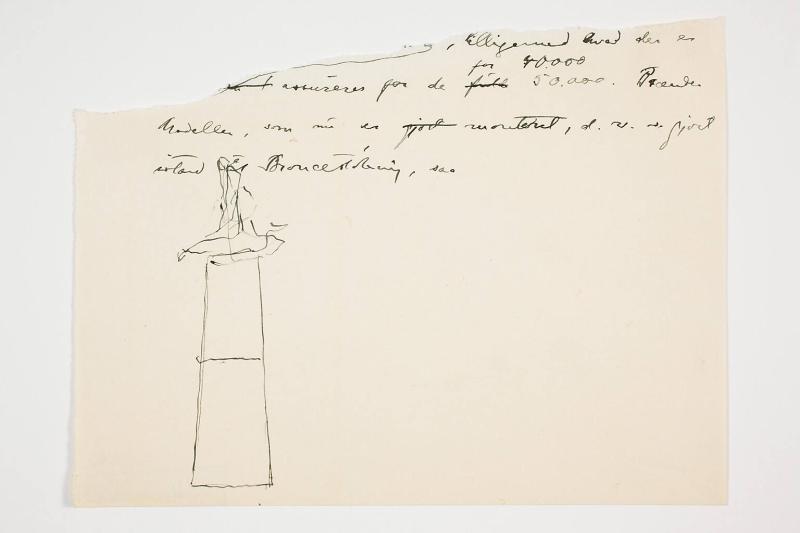 , Elligemed hvad der er
for 40.000
assureres for de fulde 50.000.
Modellen, som nu er gjort monteret, d. v. s. gjort
istand til Broncestøbning, saa